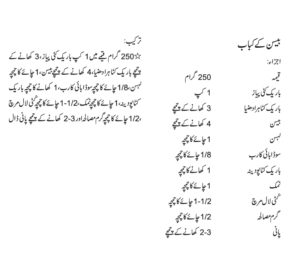 بیسن کے کباب
اجزاء:
قیمہ 250 گرام
باریک کٹی پیاز 1 کپ
باریک کٹا ہرا دھنیا 3 کھانے کے چمچے
بیسن 4 کھانے کے چمچے
لہسن 1 چائے کا چمچہ
سوڈا بائی کارب 1/8 چائے کا چمچہ
باریک کٹا پودینہ 1 کھانے کا چمچہ
نمک 1 چائے کا چمچہ
کٹی لال مرچ 1-1/2 چائے کا چمچہ
گرم مصالحہ 1/2 چائے کا چمچہ
پانی 2-3 کھانے کے چمچے
ترکیب:
☆250 گرام قیمے میں 1 کپ باریک کٹی پیاز، 3 کھانے کے
چمچے باریک کٹا ہرا دھنیا، 4 کھانے کے چمچے بیسن، 1 چائے کا چمچہ
لہسن، 1/8 چائے کا چمچہ سوڈا بائی کارب، 1 کھانے کا چمچہ باریک
کٹا پودینہ، 1 چائے کا چمچہ نمک، 1-1/2 چائے کا چمچہ کٹی لال مرچ
،1/2 چائے کا چمچہ گرم مصالحہ اور 2-3 کھانے کے چمچے پانی ڈال